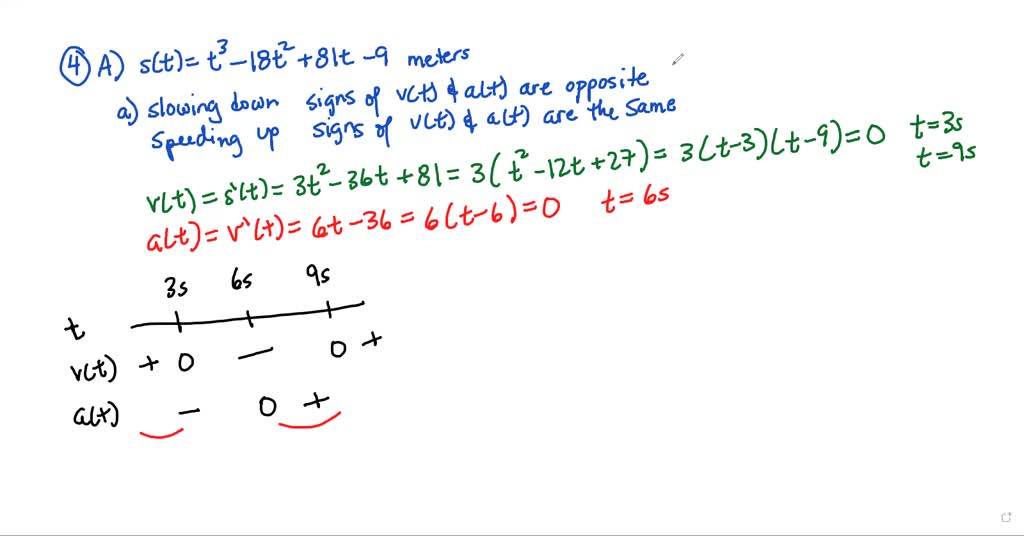 ④ A) s(t) = t³ - 18t² + 81t - 9 meters
a) slowing down signs of v(t) & a(t) are opposite
speeding up signs of v(t) & a(t) are the same
v(t) = s'(t) = 3t² - 36t + 81 = 3(t² - 12t + 27) = 3(t-3)(t-9) = 0 t=3s
t=9s
a(t) = v'(t) = 6t - 36 = 6(t-6) = 0 t = 6s
3s 6s 9s
t
v(t) + 0 — 0 +
a(t) - 0 +